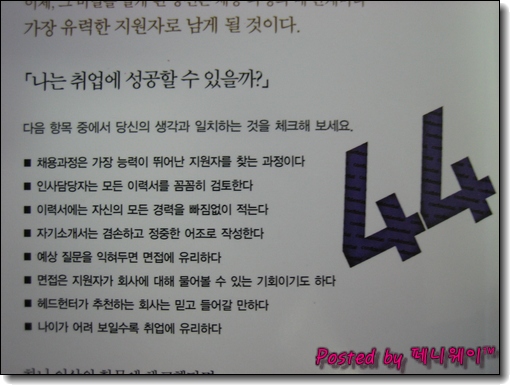 가장 유력한 지원자로 남게 될 것이다.
「나는 취업에 성공할 수 있을까?」
다음 항목 중에서 당신의 생각과 일치하는 것을 체크해 보세요.
■ 채용과정은 가장 능력이 뛰어난 지원자를 찾는 과정이다
■ 인사담당자는 모든 이력서를 꼼꼼히 검토한다
■ 이력서에는 자신의 모든 경력을 빠짐없이 적는다
■ 자기소개서는 겸손하고 정중한 어조로 작성한다
■ 예상 질문을 익혀두면 면접에 유리하다
■ 면접은 지원자가 회사에 대해 물어볼 수 있는 기회이기도 하다
■ 헤드헌터가 추천하는 회사는 믿고 들어갈 만하다
■ 나이가 어려 보일수록 취업에 유리하다
44
Posted by 페니웨이™